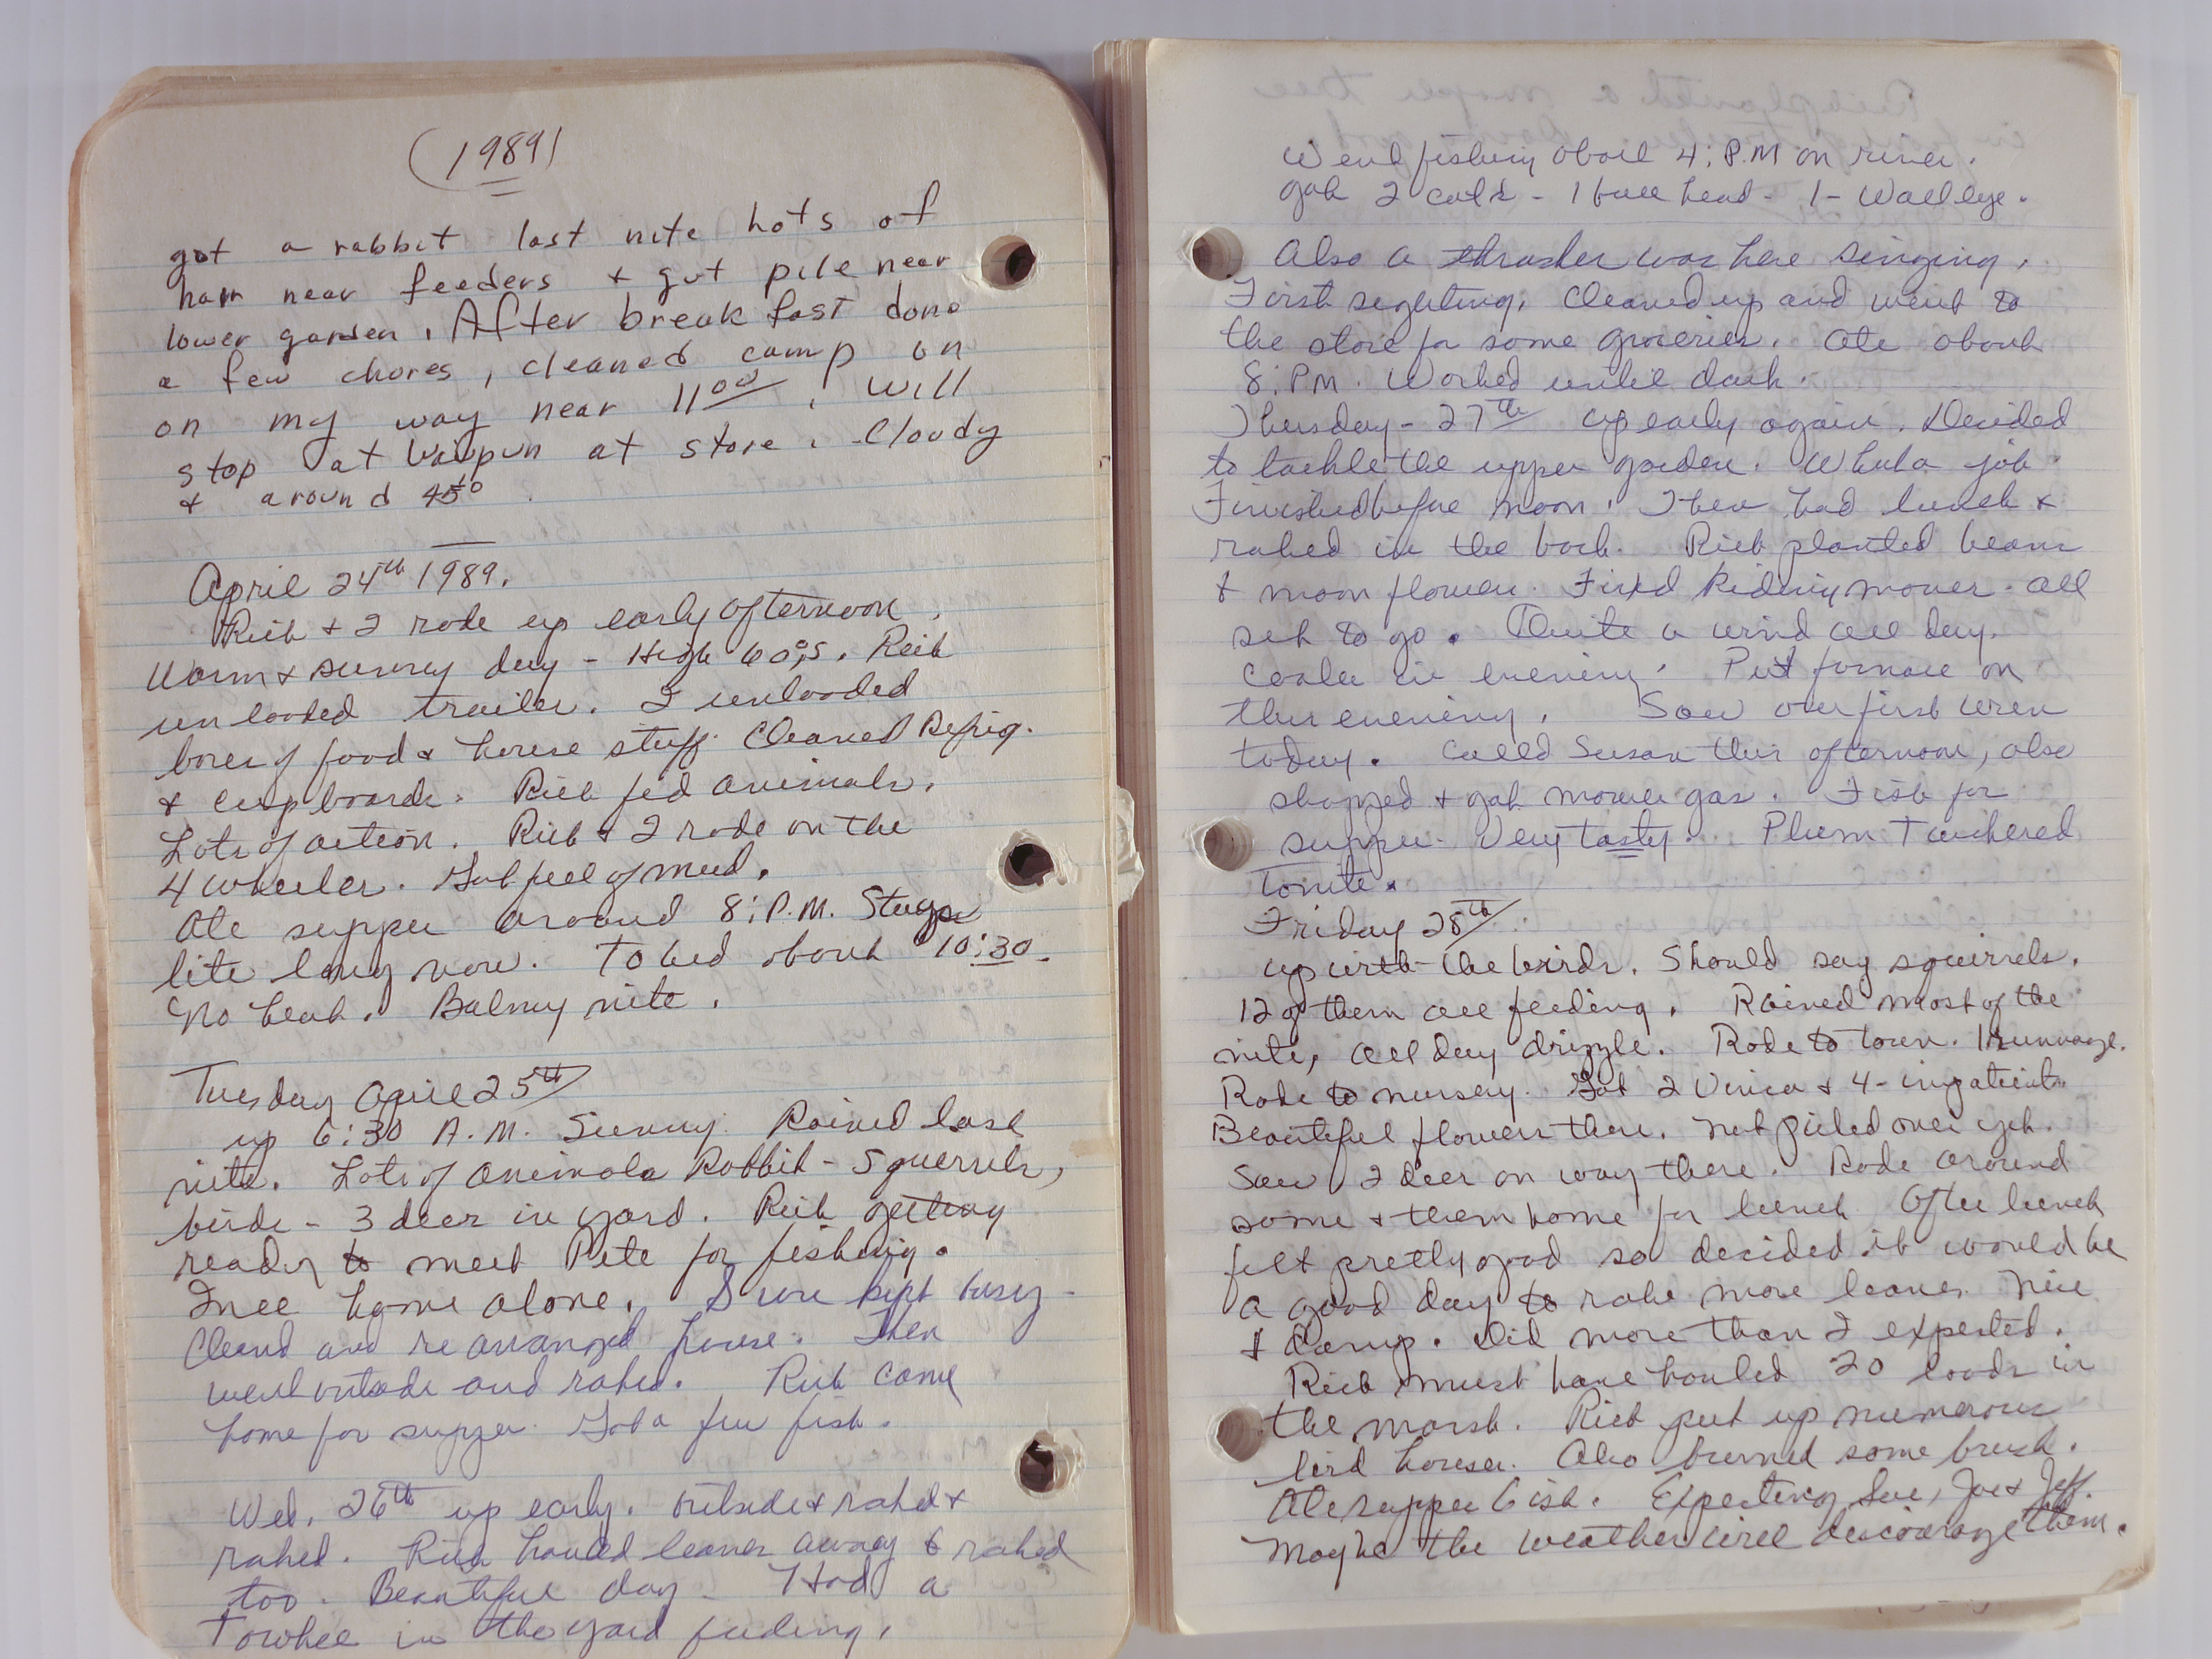 (1989)
got a rabbit last nite hots of
hair near feeders & gut pile near
lower garden. After breakfast done
a few chores, cleaned camp on
on my way near 11 00. Will
stop at Waupun at store. Cloudy
& around 45°.
April 24th 1989.
Rich & I rode up early afternoon.
Warm & sunny day - High 60°s. Rich
unloaded trailer. I unloaded
boxes of food & house stuff. Cleaned Refrig.
& cupboards. Rich fed animals.
Lots of action. Rich & I rode on the
4 wheeler. Got feel of mud.
Ate supper around 8:P.M. Stays
lite long now. To bed about 10:30.
No heat. Balmy nite.
Tuesday April 25th
up 6:30 A.M. Sunny. Rained last
nite. Lots of animals Rabbit - Squerrels,
birds - 3 deer in yard. Rich getting
ready to meet Pete for fishing.
I home alone. Sure kept busy -
Cleand and rearranged house. Then
went outside and raked. Rich came
home for supper. Got a few fish.
Wed. 26th up early. outside & raked &
raked. Rich hauled leaves away & raked
too. Beautiful day - Had a
Towhee in the yard feeding.
Went fishing about 4:P.M on river.
got 2 cats - 1 bull head - 1 - Walleye.
Also a thrasher was here singing.
First sighting. Cleaned up and went to
the store for some groceries. Ate about
8:PM. Worked until dark.
Thursday - 27th up early again. Decided
to tackle the upper garden. What a job.
Finished before noon. Then had lunch &
raked in the back. Rich planted beans
& moon flower. Fixed Riding mower. all
set to go. Quite a wind all day.
Cooler in evening. Put furnace on
this evening. Saw our first wren
today. Called Susan this afternoon, also
shopped & got mower gas. Fish for
supper. Very tasty. Plum Tuckered
Tonite.
Friday 28th
up with the birds. Should say squirrels.
12 of them all feeding. Rained most of the
nite, all day drizzle. Rode to town. 1 Rummage.
Rode to nursery. Got 2 Vinca & 4 - impatients
Beautiful flowers there. Not picked over yet.
Saw 2 deer on way there. Rode around
some & them home for lunch. After lunch
felt pretty good so decided it would be
a good day to rake more leaves. Nice
& damp. Did more than I expected.
Rich must have hauled 20 loads in
the marsh. Rich put up numerous
bird houses. Also burned some brush.
Ate supper 6ish. Expecting Sue, Joe & Jeff.
Maybe the weather will discourage them.